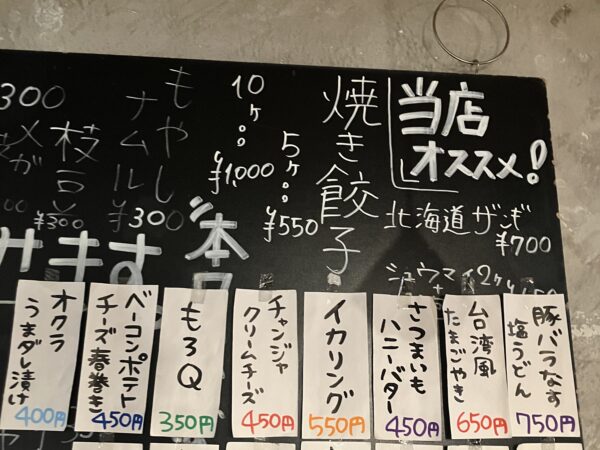 当店
オススメ!
北海道ザンギ
¥700
シュウマイ2ケ
焼き餃子
5ケ...
¥550
10ケ...
¥1,000
もやし
ナムル
¥300
枝豆
¥300
300
本日
豚バラなす
塩うどん
750円
台湾風
たまごやき
650円
さつまいも
ハニーバター
450円
イカリング
550円
チャンジャ
クリームチーズ
450円
もろQ
350円
ベーコンポテト
チーズ春巻き
450円
オクラ
うまダレ漬け
400円